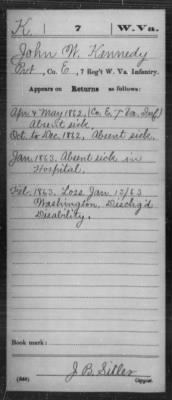 K. 7 W. Va.
John W. Kennedy
Pvt., Co. E, 7 Reg't W. Va. Infantry.
Appears on Returns as follows:
Apr & May 1862. (Co. E, 7 Va. Inf)
Absent sick.
Oct. to Dec. 1862, Absent sick.
Jan. 1863. Absent sick in
Hospital.
Feb. 1863. Loss Jan. 12/63
Washington, Disch'g'd
Disability.
Book mark:
J. B. Sitler
(546) Copyist.